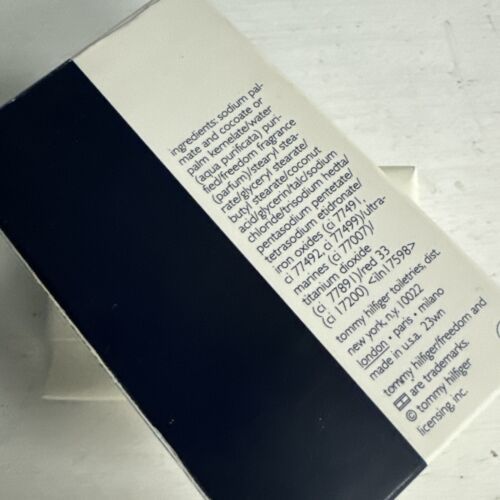 ingredients: sodium pal-
mate and cocoate or
palm kernelate/water
(aqua purificata) puri-
fied/freedom fragrance
(parfum)/stearyl stea-
rate/glyceryl stearate/
butyl stearate/coconut
acid/glycerin/talc/sodium
chloride/trisodium hedta/
pentasodium pentetate/
tetrasodium etidronate/
iron oxides (ci 77491,
ci 77492, ci 77499)/ultra-
marines (ci 77007)/
titanium dioxide
(ci 77891)/red 33
(ci 17200) <iln17598>
tommy hilfiger toiletries, dist.
new york, n.y. 10022
london • paris • milano
made in u.s.a. 23wn
tommy hilfiger/freedom and
are trademarks.
© tommy hilfiger
licensing, inc.